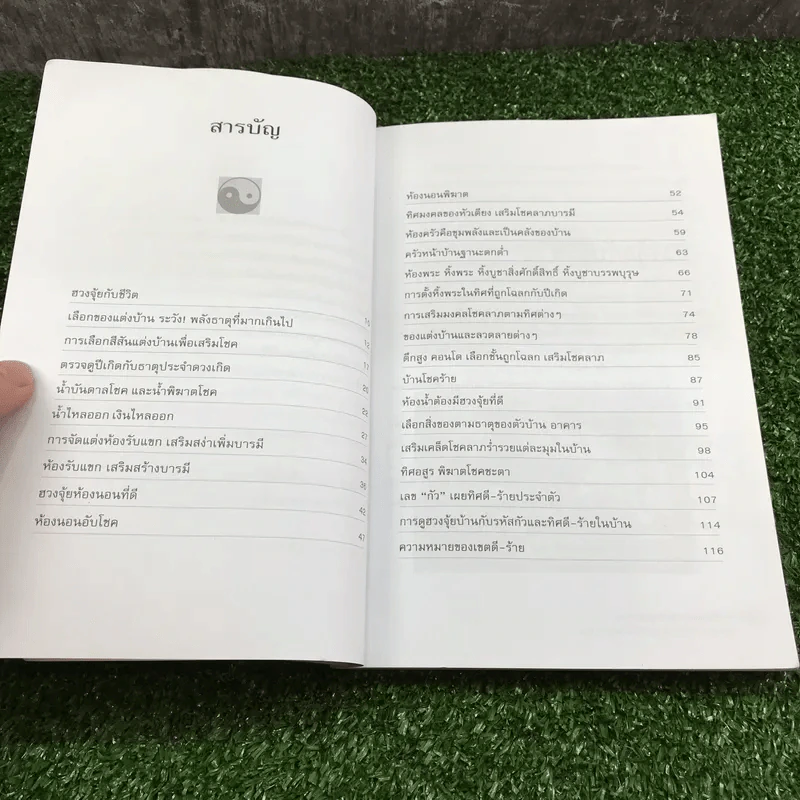 สารบัญ
ฮวงจุ้ยกับชีวิต 10
เลือกของแต่งบ้าน ระวัง! พลังธาตุที่มากเกินไป 12
การเลือกสีสันแต่งบ้านเพื่อเสริมโชค 17
ตรวจดูปีเกิดกับธาตุประจำดวงเกิด 20
น้ำบันดาลโชค และน้ำพิฆาตโชค 22
น้ำไหลออก เงินไหลออก 27
การจัดแต่งห้องรับแขก เสริมสง่าเพิ่มบารมี 34
ห้องรับแขก เสริมสร้างบารมี 36
ฮวงจุ้ยห้องนอนที่ดี 42
ห้องนอนอับโชค 47
ห้องนอนพิฆาต 52
ทิศมงคลของหัวเตียง เสริมโชคลาภบารมี 54
ห้องครัวคือขุมพลังและเป็นคลังของบ้าน 59
ครัวหน้าบ้านฐานะตกต่ำ 63
ห้องพระ หิ้งพระ หิ้งบูชาสิ่งศักดิ์สิทธิ์ หิ้งบูชาบรรพบุรุษ 66
การตั้งหิ้งพระในทิศที่ถูกโฉลกกับปีเกิด 71
การเสริมมงคลโชคลาภตามทิศต่างๆ 74
ของแต่งบ้านและลวดลายต่างๆ 78
ตึกสูง คอนโด เลือกชั้นถูกโฉลก เสริมโชคลาภ 85
บ้านโชคร้าย 87
ห้องน้ำต้องมีฮวงจุ้ยที่ดี 91
เลือกสิ่งของตามธาตุของตัวบ้าน อาคาร 95
เสริมเคล็ดโชคลาภร่ำรวยแต่ละมุมในบ้าน 98
ทิศอสูร พิฆาตโชคชะตา 104
เลข “กัว” เผยทิศดี-ร้ายประจำตัว 107
การดูฮวงจุ้ยบ้านกับรหัสกัวและทิศดี-ร้ายในบ้าน 114
ความหมายของเขตดี-ร้าย 116